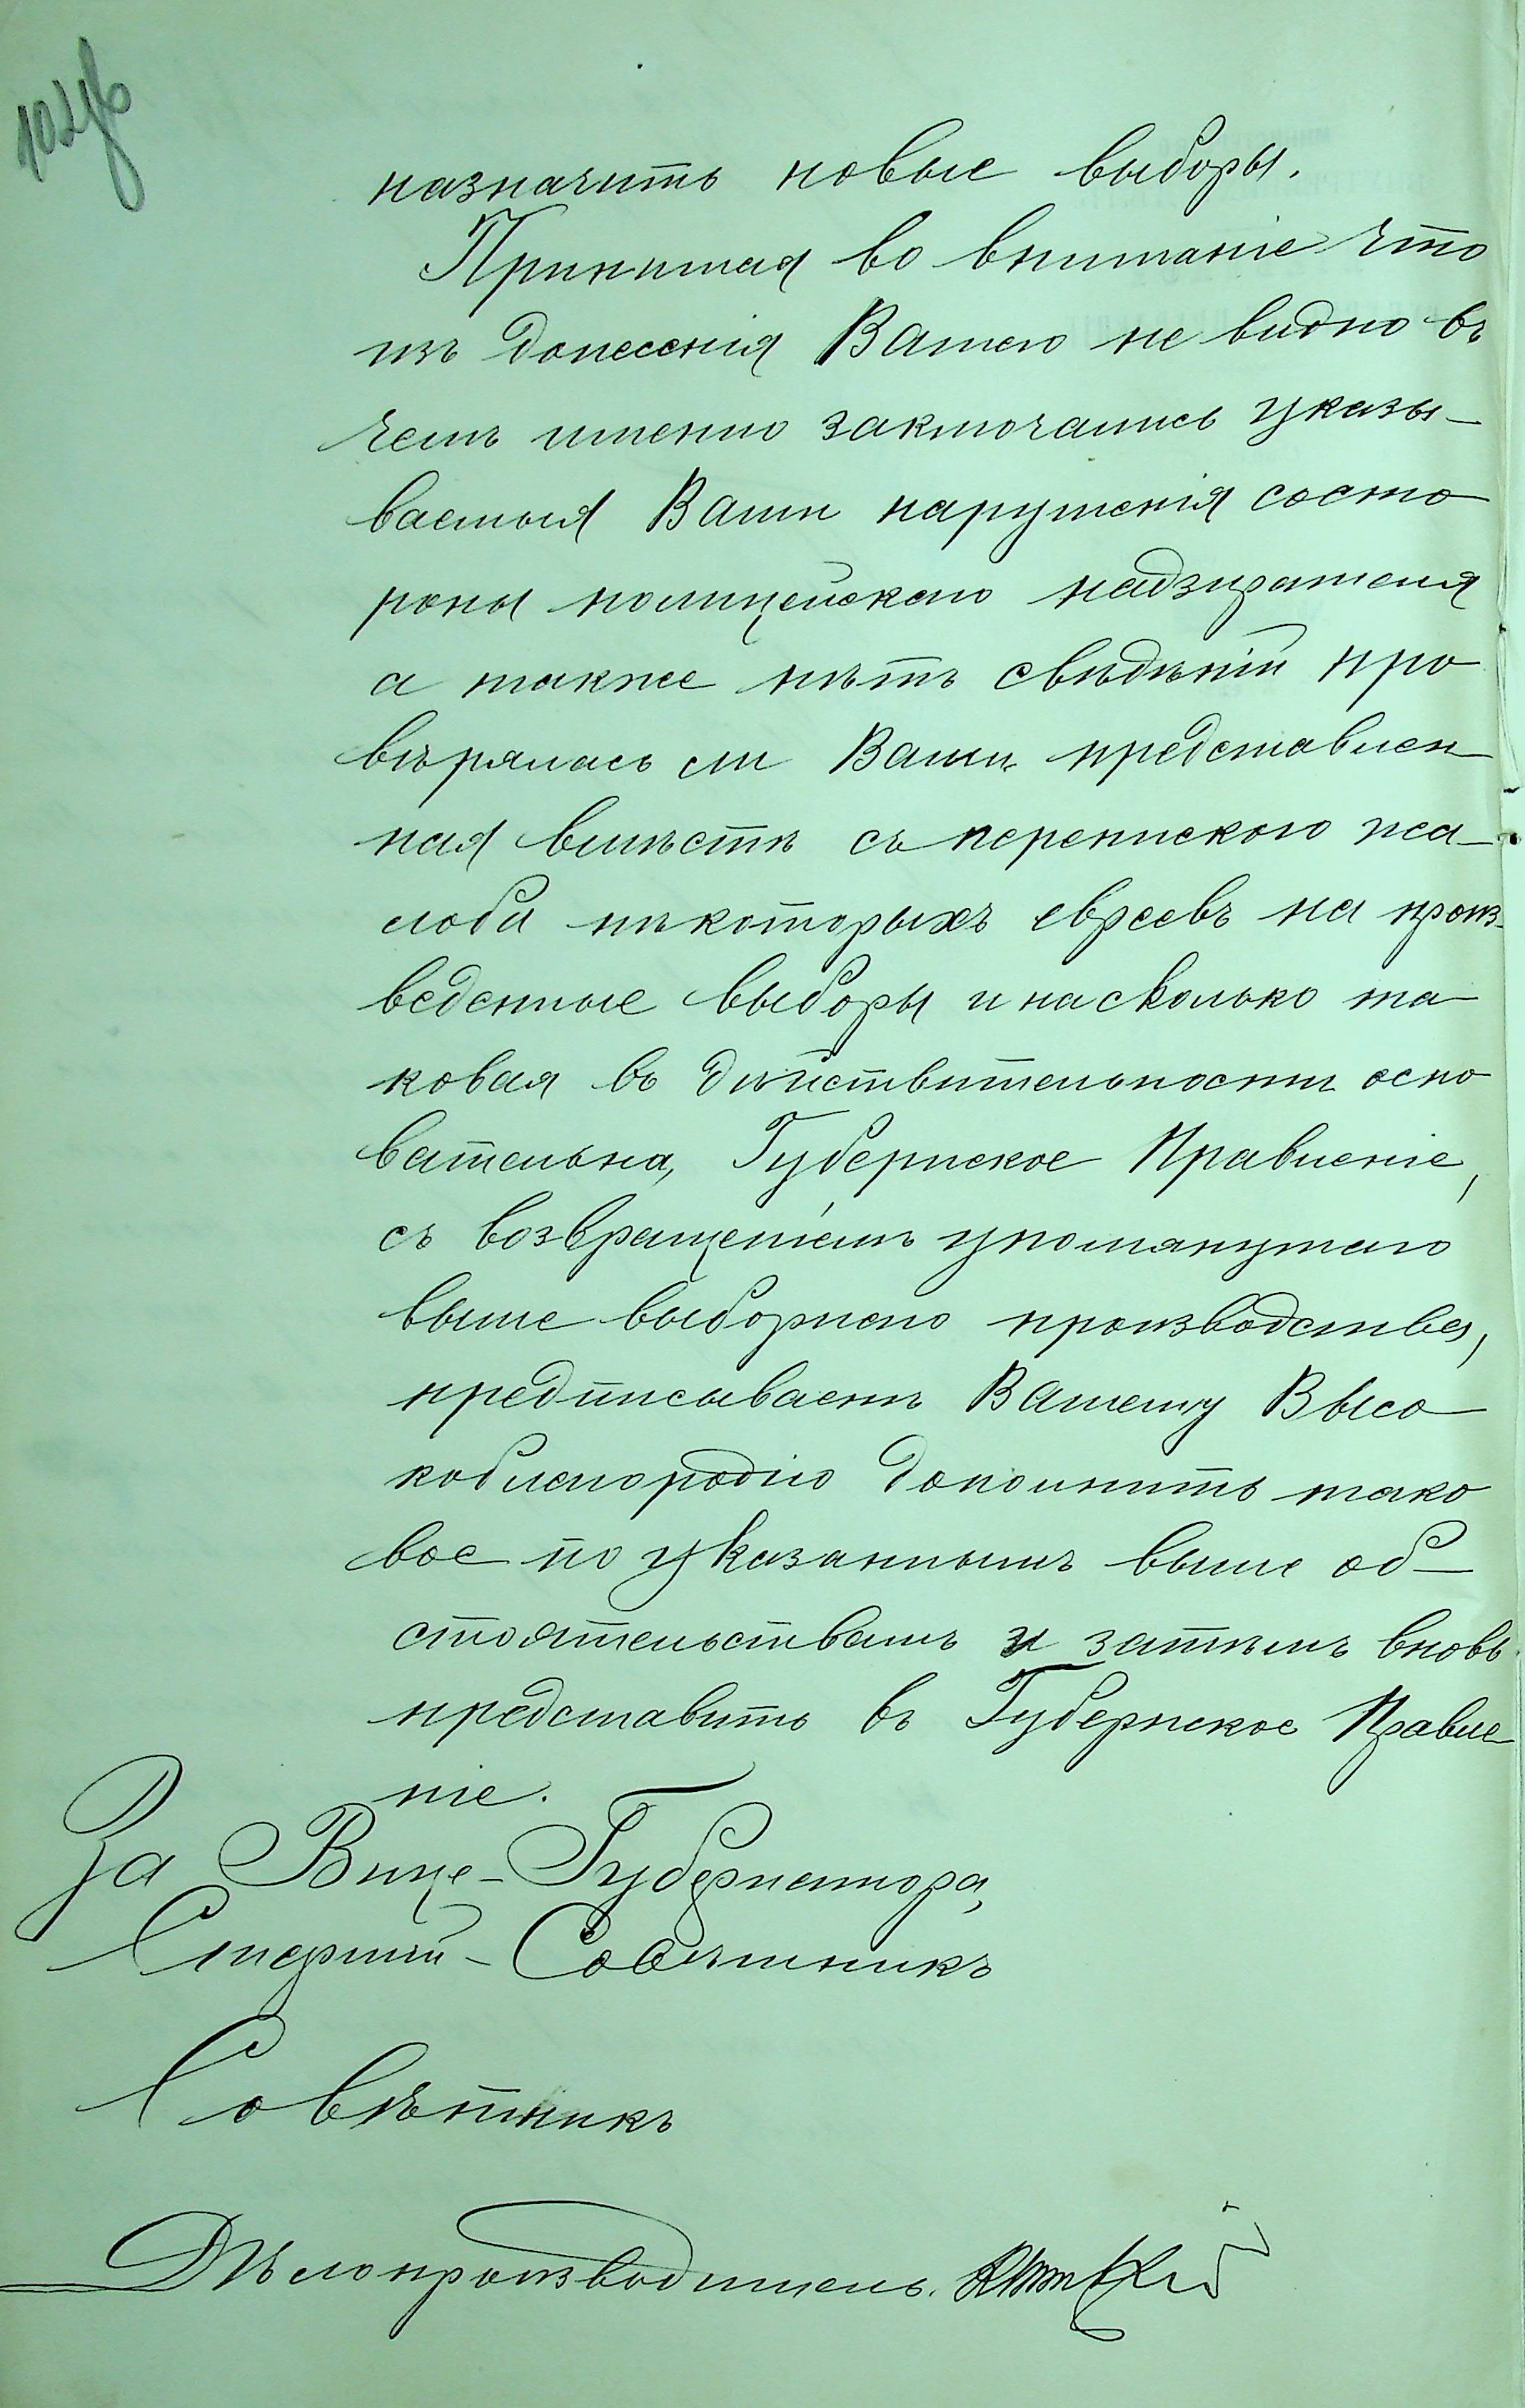 назначить новые выборы.
Принимая во вниманіе что
изъ донесенія Вашего не видно въ
чемъ именно заключались указы-
ваемыя Вами нарушенія состо
роны полицейскаго надзирателя
а также нѣтъ свѣдѣній про
вѣрялась ли Вами представлен-
ная вмѣстѣ съ перепискою жа-
лоба нѣкоторыхъ евреевъ на произ-
веденные выборы и насколько та-
ковая въ дѣйствительности осно
вательна, Губернское Правленіе,
съ возвращеніемъ упомянутаго
выше выборнаго производства,
предписываетъ Вашему Высо
коблагородію дополнить тако
вое по указаннымъ выше об-
стоятельствамъ и затѣмъ вновь
представить въ Губернское Правле-
ніе.
За Вице-Губернатора,
Старшій-Совѣтникъ
Совѣтникъ
Дѣлопроизводитель.